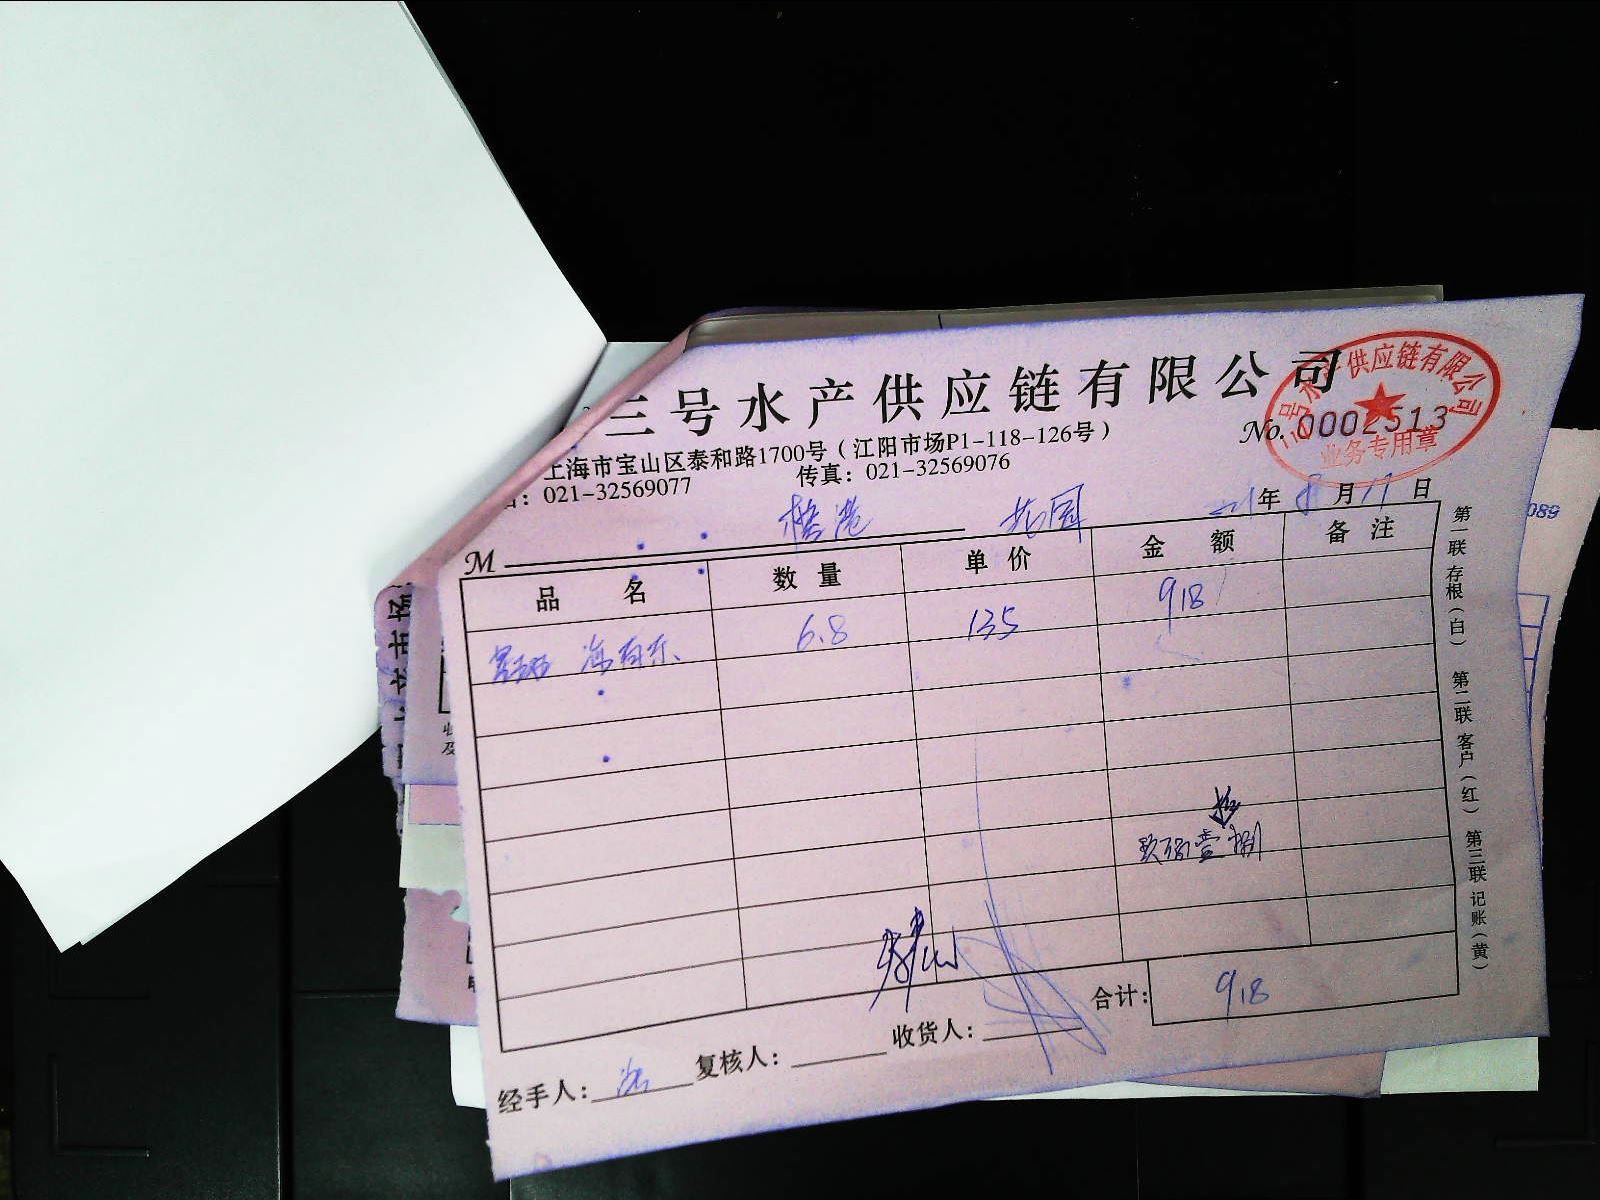 三号水产供应链有限公司
号水产供应链有限公司
业务专用章
No. 0002513
上海市宝山区泰和路1700号（江阳市场P1-118-126号）
：021-32569077 传真：021-32569076
21年8月11日
M
品名 数量 单价 金额 备注
6.8 135 918
玖佰壹拾捌
合计： 918
经手人： 复核人： 收货人：
第一联存根（白） 第二联客户（红） 第三联记账（黄）
089